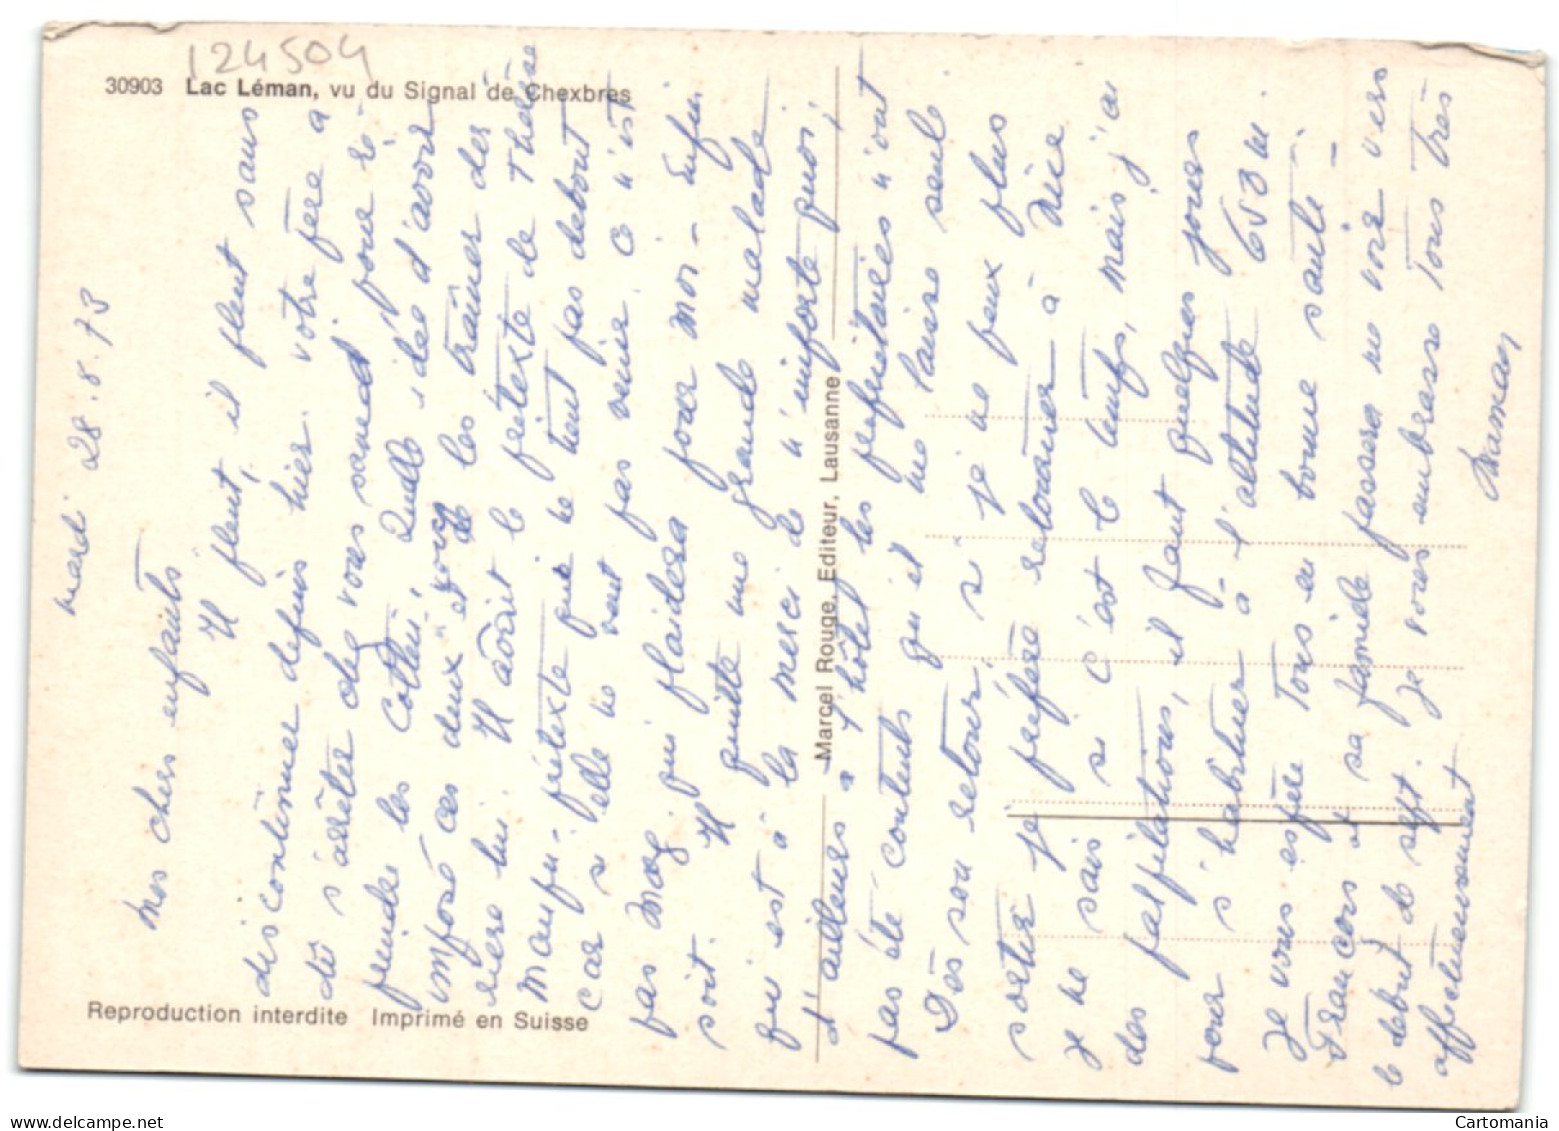 124504
30903 Lac Léman, vu du Signal de Chexbres
Mardi 28.8.73
Mes chers enfants
Il pleut, il pleut sans
discontinuer depuis hier. Votre père a
dû s'arrêter chez vous samedi pour re-
prendre les Quelle idée d'avoir
imposé ces deux et vous les traîner der-
rière lui. Il avait le prétexte de Thérèse
prétexte que ne tient pas debout
car si elle ne veut pas venir ce n'est
pas moi qui plaidera pour moi - enfin
soit. Il quitte une grande malade
qui est à la merci de n'importe quoi,
d'ailleurs à l'hôtel les propriétaires n'ont
pas été contents qu'il me laisse seule
Dès son retour, si je ne peux plus
sortir je préfère retourner à Nice
Je ne sais si c'est le temps, mais j'ai
des palpitations, il faut quelques jours
pour s'habituer à l'altitude 653 m.
Je vous espère tous en bonne santé -
François et sa famille passera me voir vers
le début de sept. Je vous embrasse tous très
affectueusement Maman
Marcel Rouge, Editeur, Lausanne
Reproduction interdite Imprimé en Suisse
www.delcampe.net
Cartomania